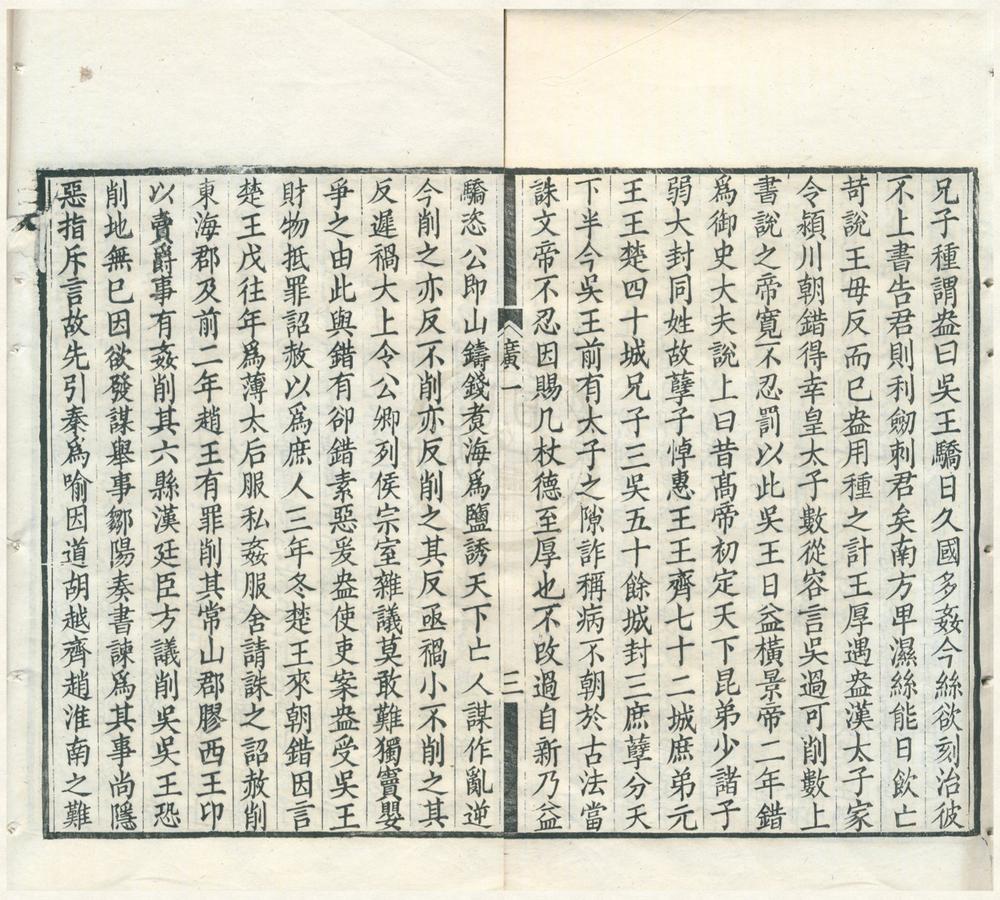 兄子種謂盎曰吳王驕日久國多姦今絲欲刻治彼
不上書告君則利劒刺君矣南方卑濕絲能日飲亡
苛說王毋反而已盎用種之計王厚遇盎漢太子家
令潁川朝錯得幸皇太子數從容言吳過可削數上
書說之帝寬不忍罰以此吳王日益橫景帝二年錯
爲御史大夫說上曰昔髙帝初定天下昆弟少諸子
弱大封同姓故孽子悼惠王王齊七十二城庶弟元
王王楚四十城兄子三吳五十餘城封三庶孽分天
下半今吳王前有太子之隙詐稱病不朝於古法當
誅文帝不忍因賜几杖德至厚也不改過自新乃益
廣一
三
驕恣公即山鑄錢煮海爲鹽誘天下亡人謀作亂逆
今削之亦反不削亦反削之其反亟禍小不削之其
反遲禍大上令公卿列侯宗室雜議莫敢難獨竇嬰
爭之由此與錯有卻錯素惡爰盎使吏案盎受吳王
財物抵罪詔赦以爲庶人三年冬楚王來朝錯因言
楚王戊往年爲薄太后服私姦服舍請誅之詔赦削
東海郡及前二年趙王有罪削其常山郡膠西王卬
以賣爵事有姦削其六縣漢廷臣方議削吳吳王恐
削地無已因欲發謀舉事鄒陽奏書諫爲其事尚隱
惡指斥言故先引秦爲喻因道胡越齊趙淮南之難